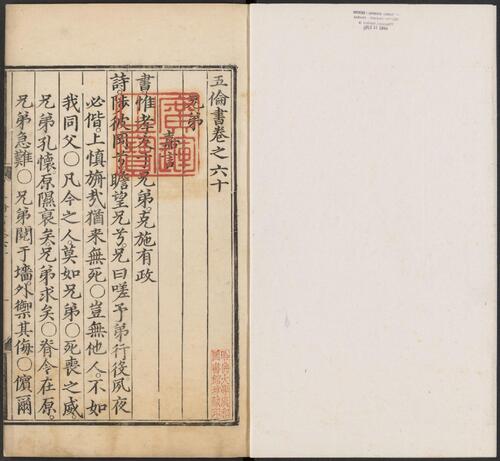 五倫書卷之六十
兄弟
嘉言
書惟孝友于兄弟克施有政
詩陟彼岡兮瞻望兄兮兄曰嗟予弟行役夙夜
必偕上慎旃哉猶來無死〇豈無他人不如
我同父〇凡今之人莫如兄弟〇死喪之威
兄弟孔懷原隰裒矣兄弟求矣〇脊令在原
兄弟急難〇兄弟鬩于墻外禦其侮〇儐爾